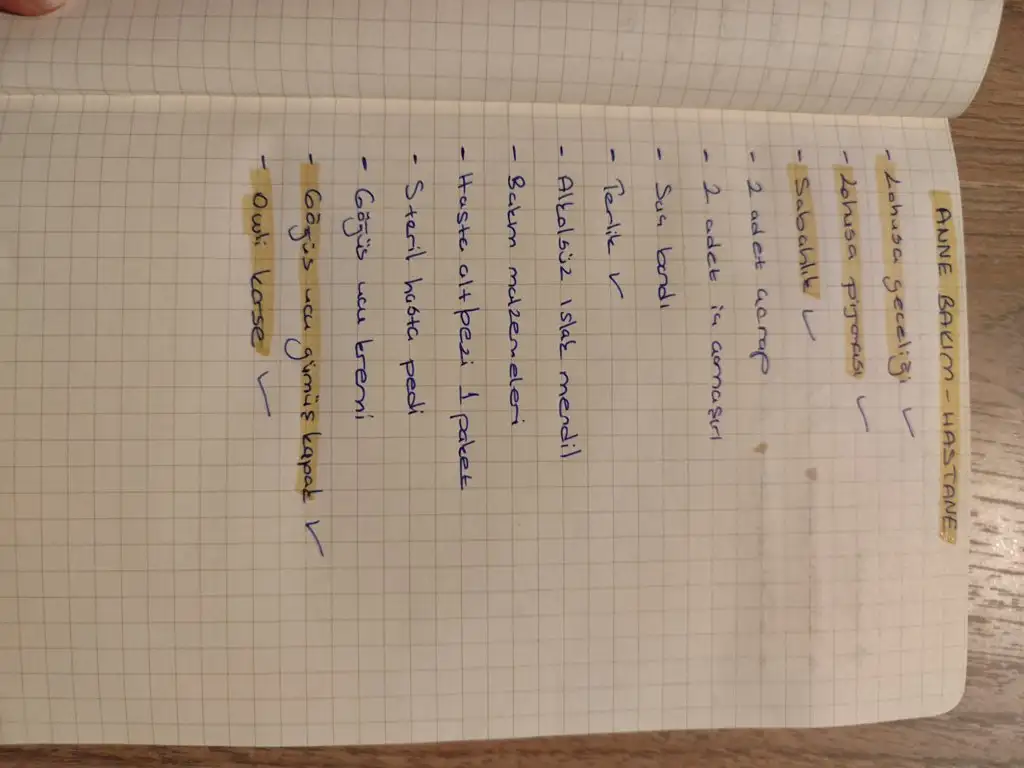 ANNE BAKIM - HASTANE
- Lohusa geceliği ✓
- Lohusa pijaması ✓
- Sabahlık ✓
- 2 adet çorap
- 2 adet iç çamaşırı
- Saç bandı
- Terlik ✓
- Alkolsüz ıslak mendil
- Bakım malzemeleri
- Hasta alt bezi 1 paket
- Steril hasta pedi
- Göğüs ucu kremi
- Göğüs ucu gümüş kapak ✓
- Owli korse ✓